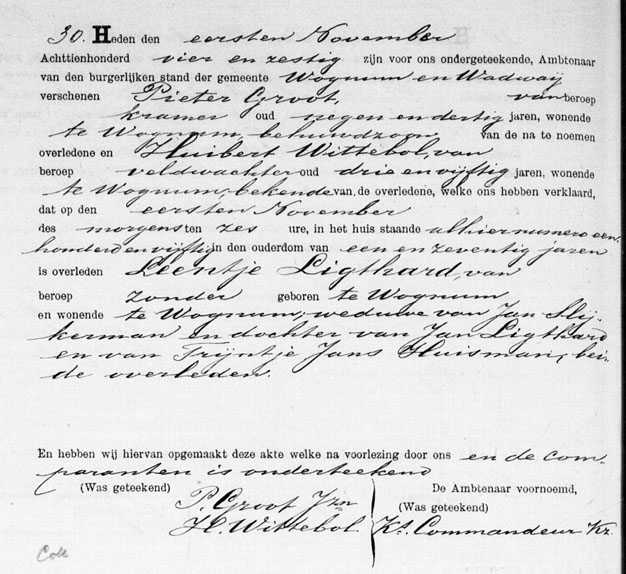 30. Heden den eersten November
Achttienhonderd vier en zestig zijn voor ons ondergeteekende, Ambtonaar
van den burgerlijken stand der gemeente Wognum en Wadway
verschenen Pieter Groot, van beroep
kramer oud negen en dertig jaren, wonende
te Wognum, behuwdzoon van de na te noemen
overledene en Huibert Wittebol, van
beroep veldwachter oud drie en vijftig jaren, wonende
te Wognum, bekende van de overledene, welke ons hebben verklaard,
dat op den eersten November
des morgens ten zes ure, in het huis staande alhier numero een-
honderd en vijftig in den ouderdom van een en zeventig jaren
is overleden Leentje Ligthard, van
beroep zonder geboren te Wognum
en wonende te Wognum, weduwe van Jan Slij-
kerman en dochter van Jan Ligthard
en van Trijntje Jans Huisman, bei-
de overleden.
En hebben wij hiervan opgemaakt deze akte welke na voorlezing door ons en de com-
paranten is onderteekend
(Was geteekend)
P. Groot Jzn
H. Wittebol.
De Ambtenaar voornoemd,
(Was geteekend)
Ks. Commandeur Kz.
Coll